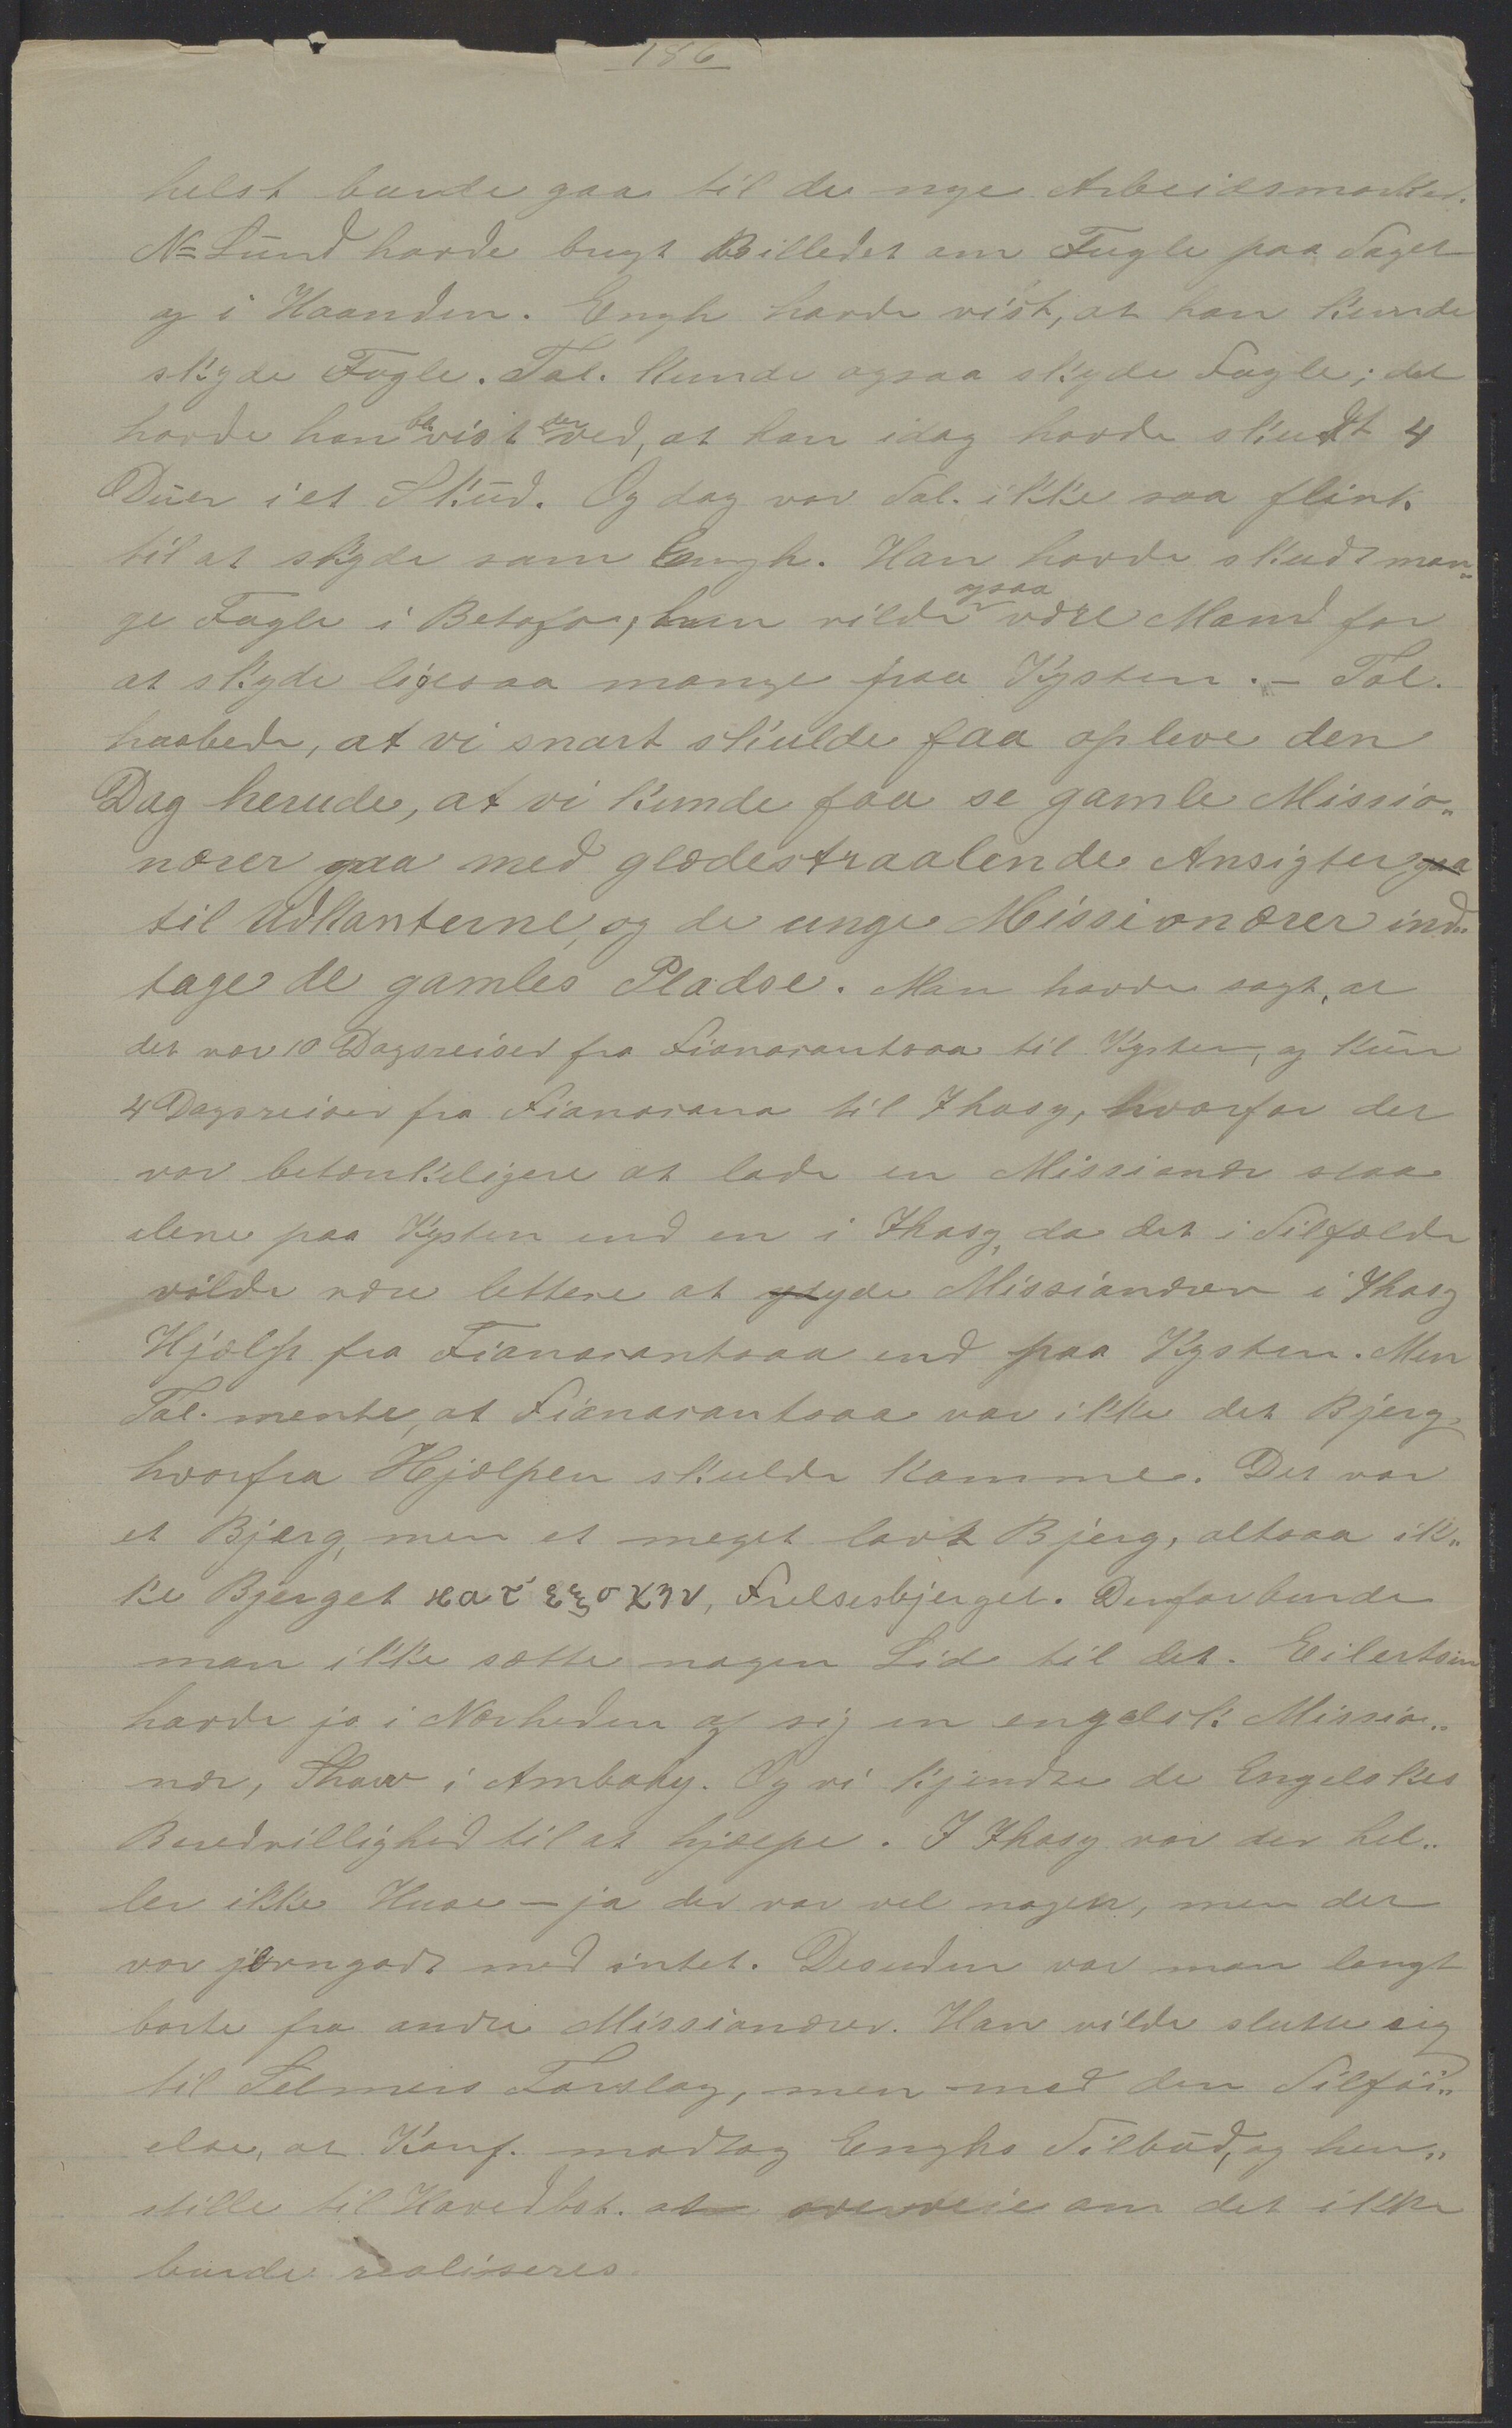 186
helst burde gaa til de nye Arbeidsmarker.
N=Lund havde brugt Billedet om Fugle paa Taget
og i Haanden. Engh havde vist, at han kunde
skyde Fugle. Tal. kunde ogsaa skyde Fugle; det
havde han bevist derved, at han idag havde skudt 4
Duer i et Skud. Og dog var Tal. ikke saa flink
til at skyde som Engh. Han havde skudt man„
ge Fugle i Betafo; han vilde ogsaa være Mand for
at skyde ligesaa mange paa Kysten. – Tal.
haabede, at vi snart skulde faa opleve den
Dag herude, at vi kunde faa se gamle Missio„
nærer gaa med glædestraalende Ansigter gaa
til Udkanterne, og de unge Missionærer ind„
tage de gamles Pladse. Man havde sagt, at
det var 10 Dagsreiser fra Fianarantsoa til Kysten, og kun
4 Dagsreiser fra Fianarana til Ihosy, hvorfor det
var betænkeligere at lade en Missionær staa
alene paa Kysten end en i Ihosy, da det i Tilfælde
vilde være lettere at yde Missionæren i Ihosy
Hjælp fra Fianarantsoa end paa Kysten. Men
Tal. mente, at Fianarantsoa var ikke det Bjerg,
hvorfra Hjælpen skulde komme. Det var
et Bjerg, men et meget lavt Bjerg, altsaa ik„
ke Bjerget κατ' εξοχην, Frelsesbjerget. Derfor burde
man ikke sætte nogen Lid til det. Eilertsen
havde jo i Nærheden af sig en engelsk Missio„
nær, Shaw i Ambohy. Og vi kjendte de Engelskes
Beredvillighed til at hjælpe. I Ihosy var der hel„
ler ikke Huse – ja der var vel nogen, men det
var jevngodt med intet. Desuden var man langt
borte fra andre Missionærer. Han vilde slutte sig
til Selmers Forslag, men med den Tilföi„
else, at Konf. modtog Enghs Tilbud, og hen„
stille til Hovedbst. at overveie om det ikke
burde realiseres.